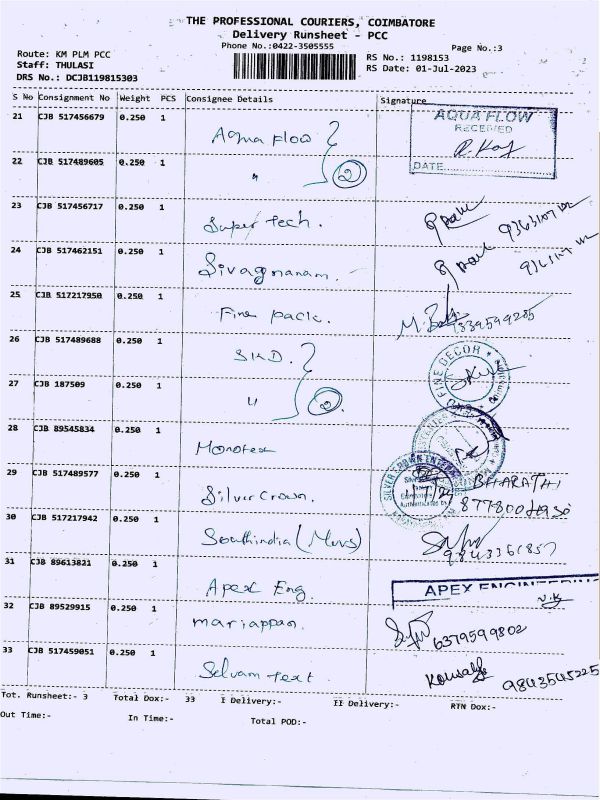 THE PROFESSIONAL COURIERS, COIMBATORE
Delivery Runsheet - PCC
Phone No.:0422-3505555
Page No.:3
Route: KM PLM PCC
Staff: THULASI
DRS No.: DCJB119815303
RS No.: 1198153
RS Date: 01-Jul-2023
S No Consignment No Weight PCS Consignee Details Signature
21 CJB 517456679 0.250 1 Aqua Flow
AQUA FLOW
RECEIVED
DATE
22 CJB 517489605 0.250 1 " 2
23 CJB 517456717 0.250 1 Super tech.
24 CJB 517462151 0.250 1 Sivagnanam.
25 CJB 517217950 0.250 1 Fine pack.
26 CJB 517489688 0.250 1 SKD.
FINE DECOR
27 CJB 187509 0.250 1 " 2
28 CJB 89545834 0.250 1 Monotex
29 CJB 517489577 0.250 1 Silver Crown.
BHARATHI
30 CJB 517217942 0.250 1 Southindia
9843361857
31 CJB 89613821 0.250 1 Apex Eng.
APEX
32 CJB 89529915 0.250 1 mariappan.
6379599802
33 CJB 517459051 0.250 1 Selvam text.
9843545225
Tot. Runsheet:- 3 Total Dox:- 33 I Delivery:- II Delivery:- RTN Dox:-
Out Time:- In Time:- Total POD:-